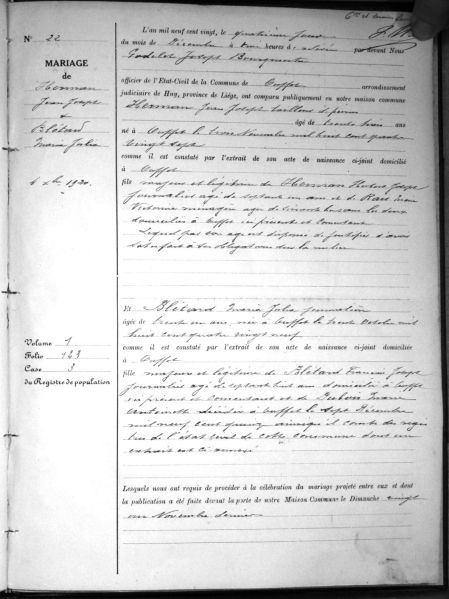 N° 22
MARIAGE
de
Herman
Jean Joseph
&
Blétard
Maria Julia
4 xbre 1920.
Volume 1
Folio 123
Case 3
du Registre de population
L'an mil neuf cent vingt, le quatrième jour
du mois de Décembre à trois heures de par devant Nous
Godelet Joseph Bourgmestre
officier de l'Etat-Civil de la Commune de Ouffet arrondissement
judiciaire de Huy, province de Liége, ont comparu publiquement en notre maison commune
Herman Jean Joseph tailleur de pierres
âgé de trente trois ans
né à Ouffet le trois Novembre mil huit cent quatre
vingt sept
comme il est constaté par l'extrait de son acte de naissance ci-joint domicilié
à Ouffet
fils majeur et légitime de Herman Joseph
journalier âgé de septante un ans et de
Victorine ménagère âgée de soixante ans les deux
domiciliés à Ouffet ici présents et consentants
Lequel par son âge est dispensé de justifier d'avoir
satisfait à ses obligations sur la milice
Et Blétard Maria Julia journalière
âgée de trente un ans, née à Ouffet le trente Octobre mil
huit cent quatre vingt neuf
comme il est constaté par l'extrait de son acte de naissance ci-joint domiciliée
à Ouffet
fille majeure et légitime de Blétard François Joseph
journalier âgé de septante huit ans domicilié à Ouffet
ici présent et consentant et de Dubois Marie
Antoinette décédée à Ouffet le sept Décembre
mil neuf cent quinze ainsi qu'il conste des regis
tres de l'état civil de cette commune dont un
extrait est ci annexé
Lesquels nous ont requis de procéder à la célébration du mariage projeté entre eux et dont
la publication a été faite devant la porte de notre Maison Commune le Dimanche vingt
un Novembre dernier